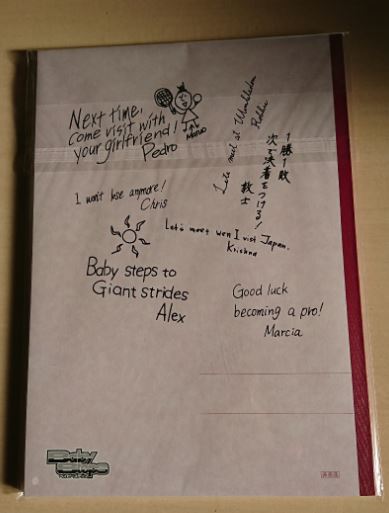 Next time,
come visit with
your girlfriend!
Pedro
Let's meet at Wimbledon
Robbie
1勝1敗
次で決着をつける!
敦士
I won't lose anymore!
Chris
Let's meet wen I visit Japan.
Krishna
Baby steps to
Giant strides
Alex
Good luck
becoming a pro!
Marcia
Baby
Steps
非売品